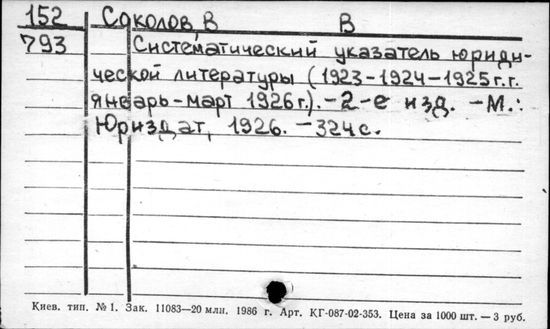 152 Соколов, В В
793 Систематический указатель юриди-
ческой литературы (1923-1924-1925г.г.
январь-март 1926г.).-2-е изд. -М.:
Юриздат, 1926. -324с.
Киев. тип. № 1. Зак. 11083—20 млн. 1986 г. Арт. КГ-087-02-353. Цена за 1000 шт. — 3 руб.